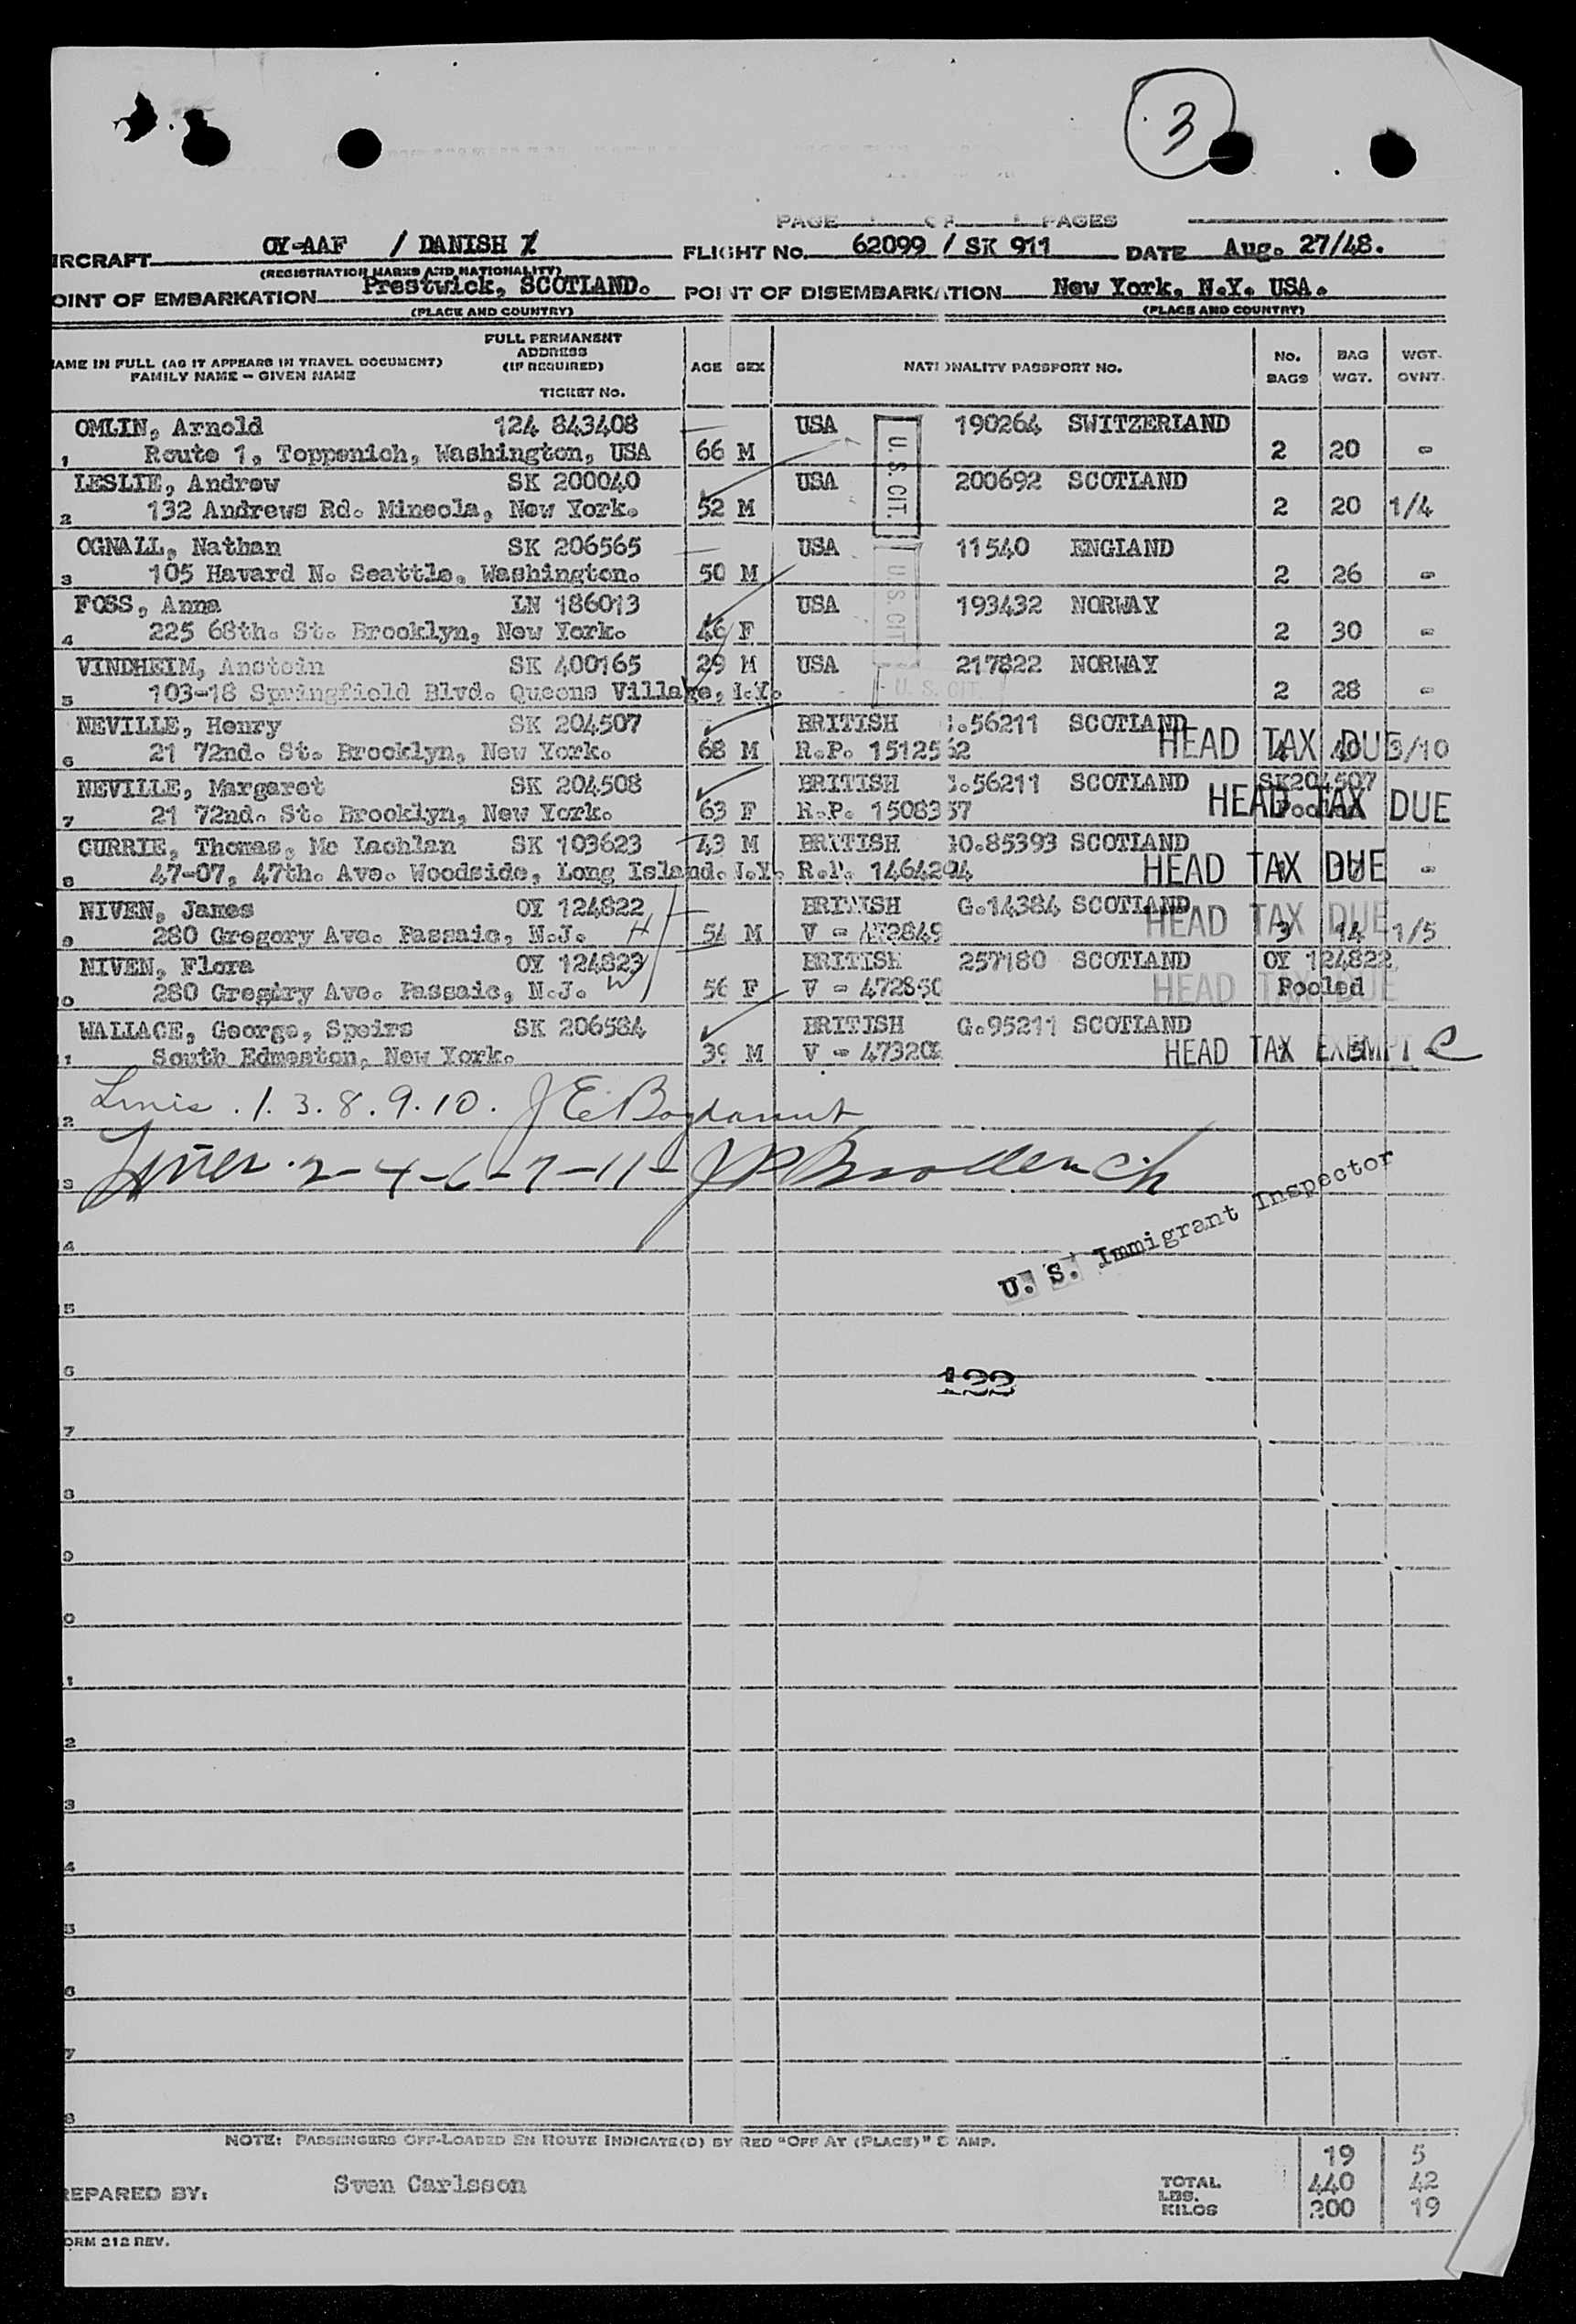 3
PAGE PAGES
IRCRAFT OY-AAF / DANISH / FLIGHT No. 62099 / SK 911 DATE Aug. 27/48.
(REGISTRATION MARKS AND NATIONALITY)
OINT OF EMBARKATION Prestwick, SCOTLAND. POINT OF DISEMBARKATION New York, N.Y. USA.
(PLACE AND COUNTRY) (PLACE AND COUNTRY)
AME IN FULL (AS IT APPEARS IN TRAVEL DOCUMENT)
FAMILY NAME - GIVEN NAME
FULL PERMANENT
ADDRESS
(IF REQUIRED)
TICKET No.
AGE SEX NATIONALITY PASSPORT NO. No. BAGS BAG WGT. WGT. OVNT.
OMLIN, Arnold 124 843408 USA 190264 SWITZERLAND
1 Route 1, Toppenich, Washington, USA 66 M 2 20 -
LESLIE, Andrew SK 200040 USA 200692 SCOTLAND
2 132 Andrews Rd. Mineola, New York. 52 M 2 20 1/4
U. S. CIT.
OGNALL, Nathan SK 206565 USA 11540 ENGLAND
3 105 Havard N. Seattle, Washington. 50 M 2 26 -
FOSS, Anna LN 186013 USA 193432 NORWAY
4 225 68th. St. Brooklyn, New York. 46 F 2 30 -
U. S. CIT.
VINDHEIM, Anstein SK 400165 29 M USA 217822 NORWAY
5 103-18 Springfield Blvd. Queens Village, N.Y. 2 28 -
U. S. CIT.
NEVILLE, Henry SK 204507 BRITISH .56211 SCOTLAND
6 21 72nd. St. Brooklyn, New York. 68 M R.P. 1512562 HEAD TAX DUE 4 40 3/10
NEVILLE, Margaret SK 204508 BRITISH .56211 SCOTLAND SK204507
7 21 72nd. St. Brooklyn, New York. 63 F R.P. 1508357 HEAD TAX DUE Pooled
CURRIE, Thomas, Mc Lachlan SK 103623 43 M BRITISH 0.85393 SCOTLAND
8 47-07, 47th. Ave. Woodside, Long Island. N.Y. R.P. 1464294 HEAD TAX DUE -
NIVEN, James OY 124822 BRITISH G.14384 SCOTLAND
9 280 Gregory Ave. Passaic, N.J. H 54 M V - 472849 HEAD TAX DUE 3 14 1/5
NIVEN, Flora OY 124823 BRITISH 257180 SCOTLAND OY 124822
0 280 Gregary Ave. Passaic, N.J. W 56 F V - 472850 HEAD TAX DUE Pooled
WALLACE, George, Speirs SK 206584 BRITISH G.95211 SCOTLAND
1 South Edmeston, New York. 39 M V - 47320 HEAD TAX EXEMPT C
2 1. 3. 8. 9. 10.
3 2-4-6-7-11-
4 U. S. Immigrant Inspector
5
6 122
7
8
9
0
1
2
3
4
5
6
7
8
NOTE: PASSENGERS OFF-LOADED EN ROUTE INDICATE(D) BY RED "OFF AT (PLACE)" STAMP.
19 5
REPARED BY: Sven Carlsson TOTAL
LBS. 440 42
KILOS 200 19
ORM 212 REV.